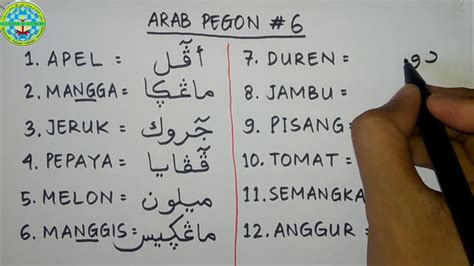 ARAB PEGON #6
1. APEL = أڤل
2. MANGGA = ماڠݢا
3. JERUK = جروك
4. PEPAYA = ڤڤايا
5. MELON = ميلون
6. MANGGIS = ماڠݢيس
7. DUREN = دو
8. JAMBU =
9. PISANG =
10. TOMAT =
11. SEMANGKA
12. ANGGUR =